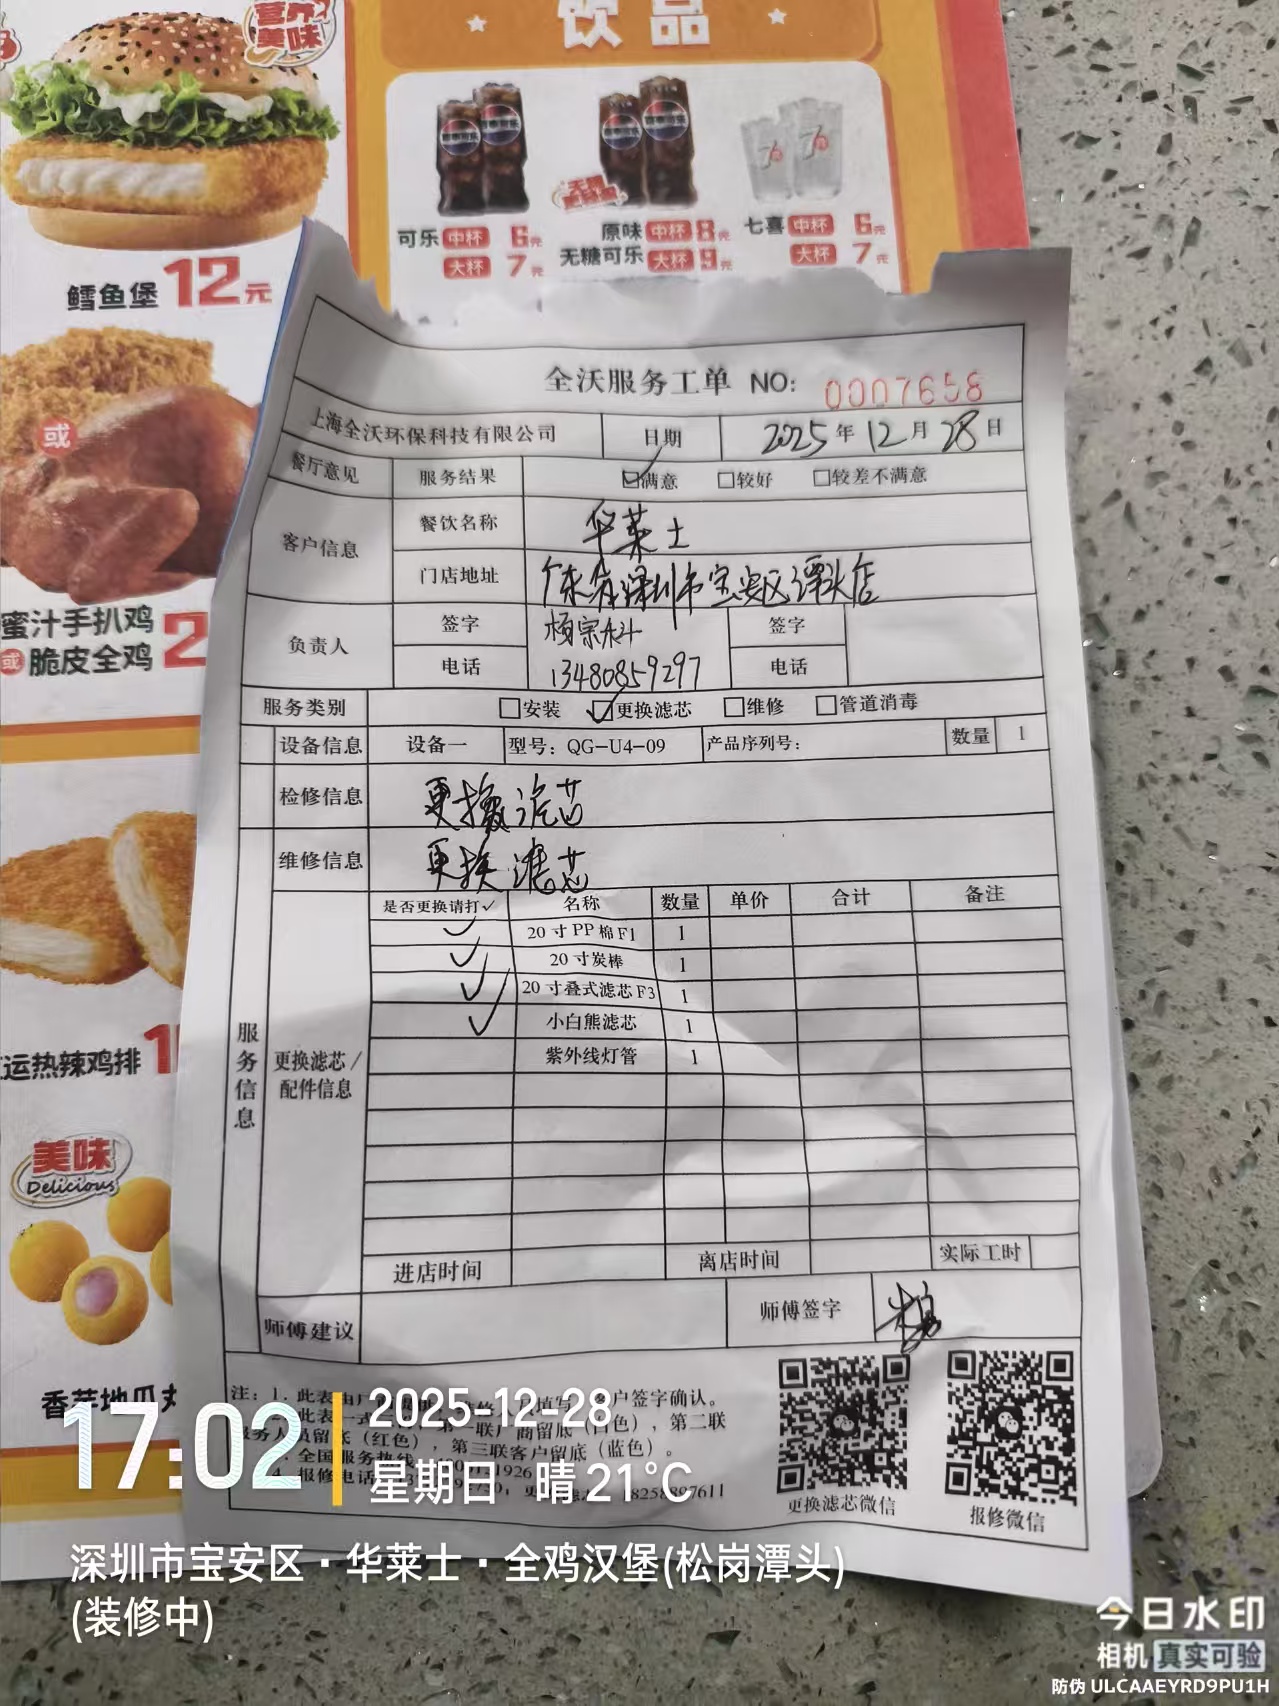 营养
美味
饮品
可乐 中杯 6元
大杯 7元
原味 中杯 8元
无糖可乐 大杯 9元
七喜 中杯 6元
大杯 7元
鳕鱼堡 12元
或
蜜汁手扒鸡
或 脆皮全鸡 2
运热辣鸡排 1
美味
Delicious
香芋地瓜丸
全沃服务工单 NO: 0007658
上海全沃环保科技有限公司 日期 2025年12月28日
餐厅意见 服务结果 ☑满意 □较好 □较差不满意
客户信息 餐饮名称 华莱士
门店地址 广东省深圳市宝安区潭头店
负责人 签字 杨宗科 签字
电话 13480859297 电话
服务类别 □安装 ☑更换滤芯 □维修 □管道消毒
设备信息 设备一 型号: QG-U4-09 产品序列号: 数量 1
检修信息 更换滤芯
维修信息 更换滤芯
服务信息
更换滤芯/
配件信息
是否更换请打✓ 名称 数量 单价 合计 备注
✓ 20寸PP棉F1 1
✓ 20寸炭棒 1
✓ 20寸叠式滤芯F3 1
✓ 小白熊滤芯 1
紫外线灯管 1
进店时间 离店时间 实际工时
师傅建议 师傅签字
注: 1. 此表由 填写 客户签字确认。
此表一式 第一联厂商留底(白色), 第二联
服务人员留底(红色), 第三联客户留底(蓝色)。
全国服务热线
4. 报修电话
更换滤芯微信
报修微信
17:02
2025-12-28
星期日 晴 21°C
深圳市宝安区·华莱士·全鸡汉堡(松岗潭头)
(装修中)
今日水印
相机 真实可验
防伪 ULCAAEYRD9PU1H